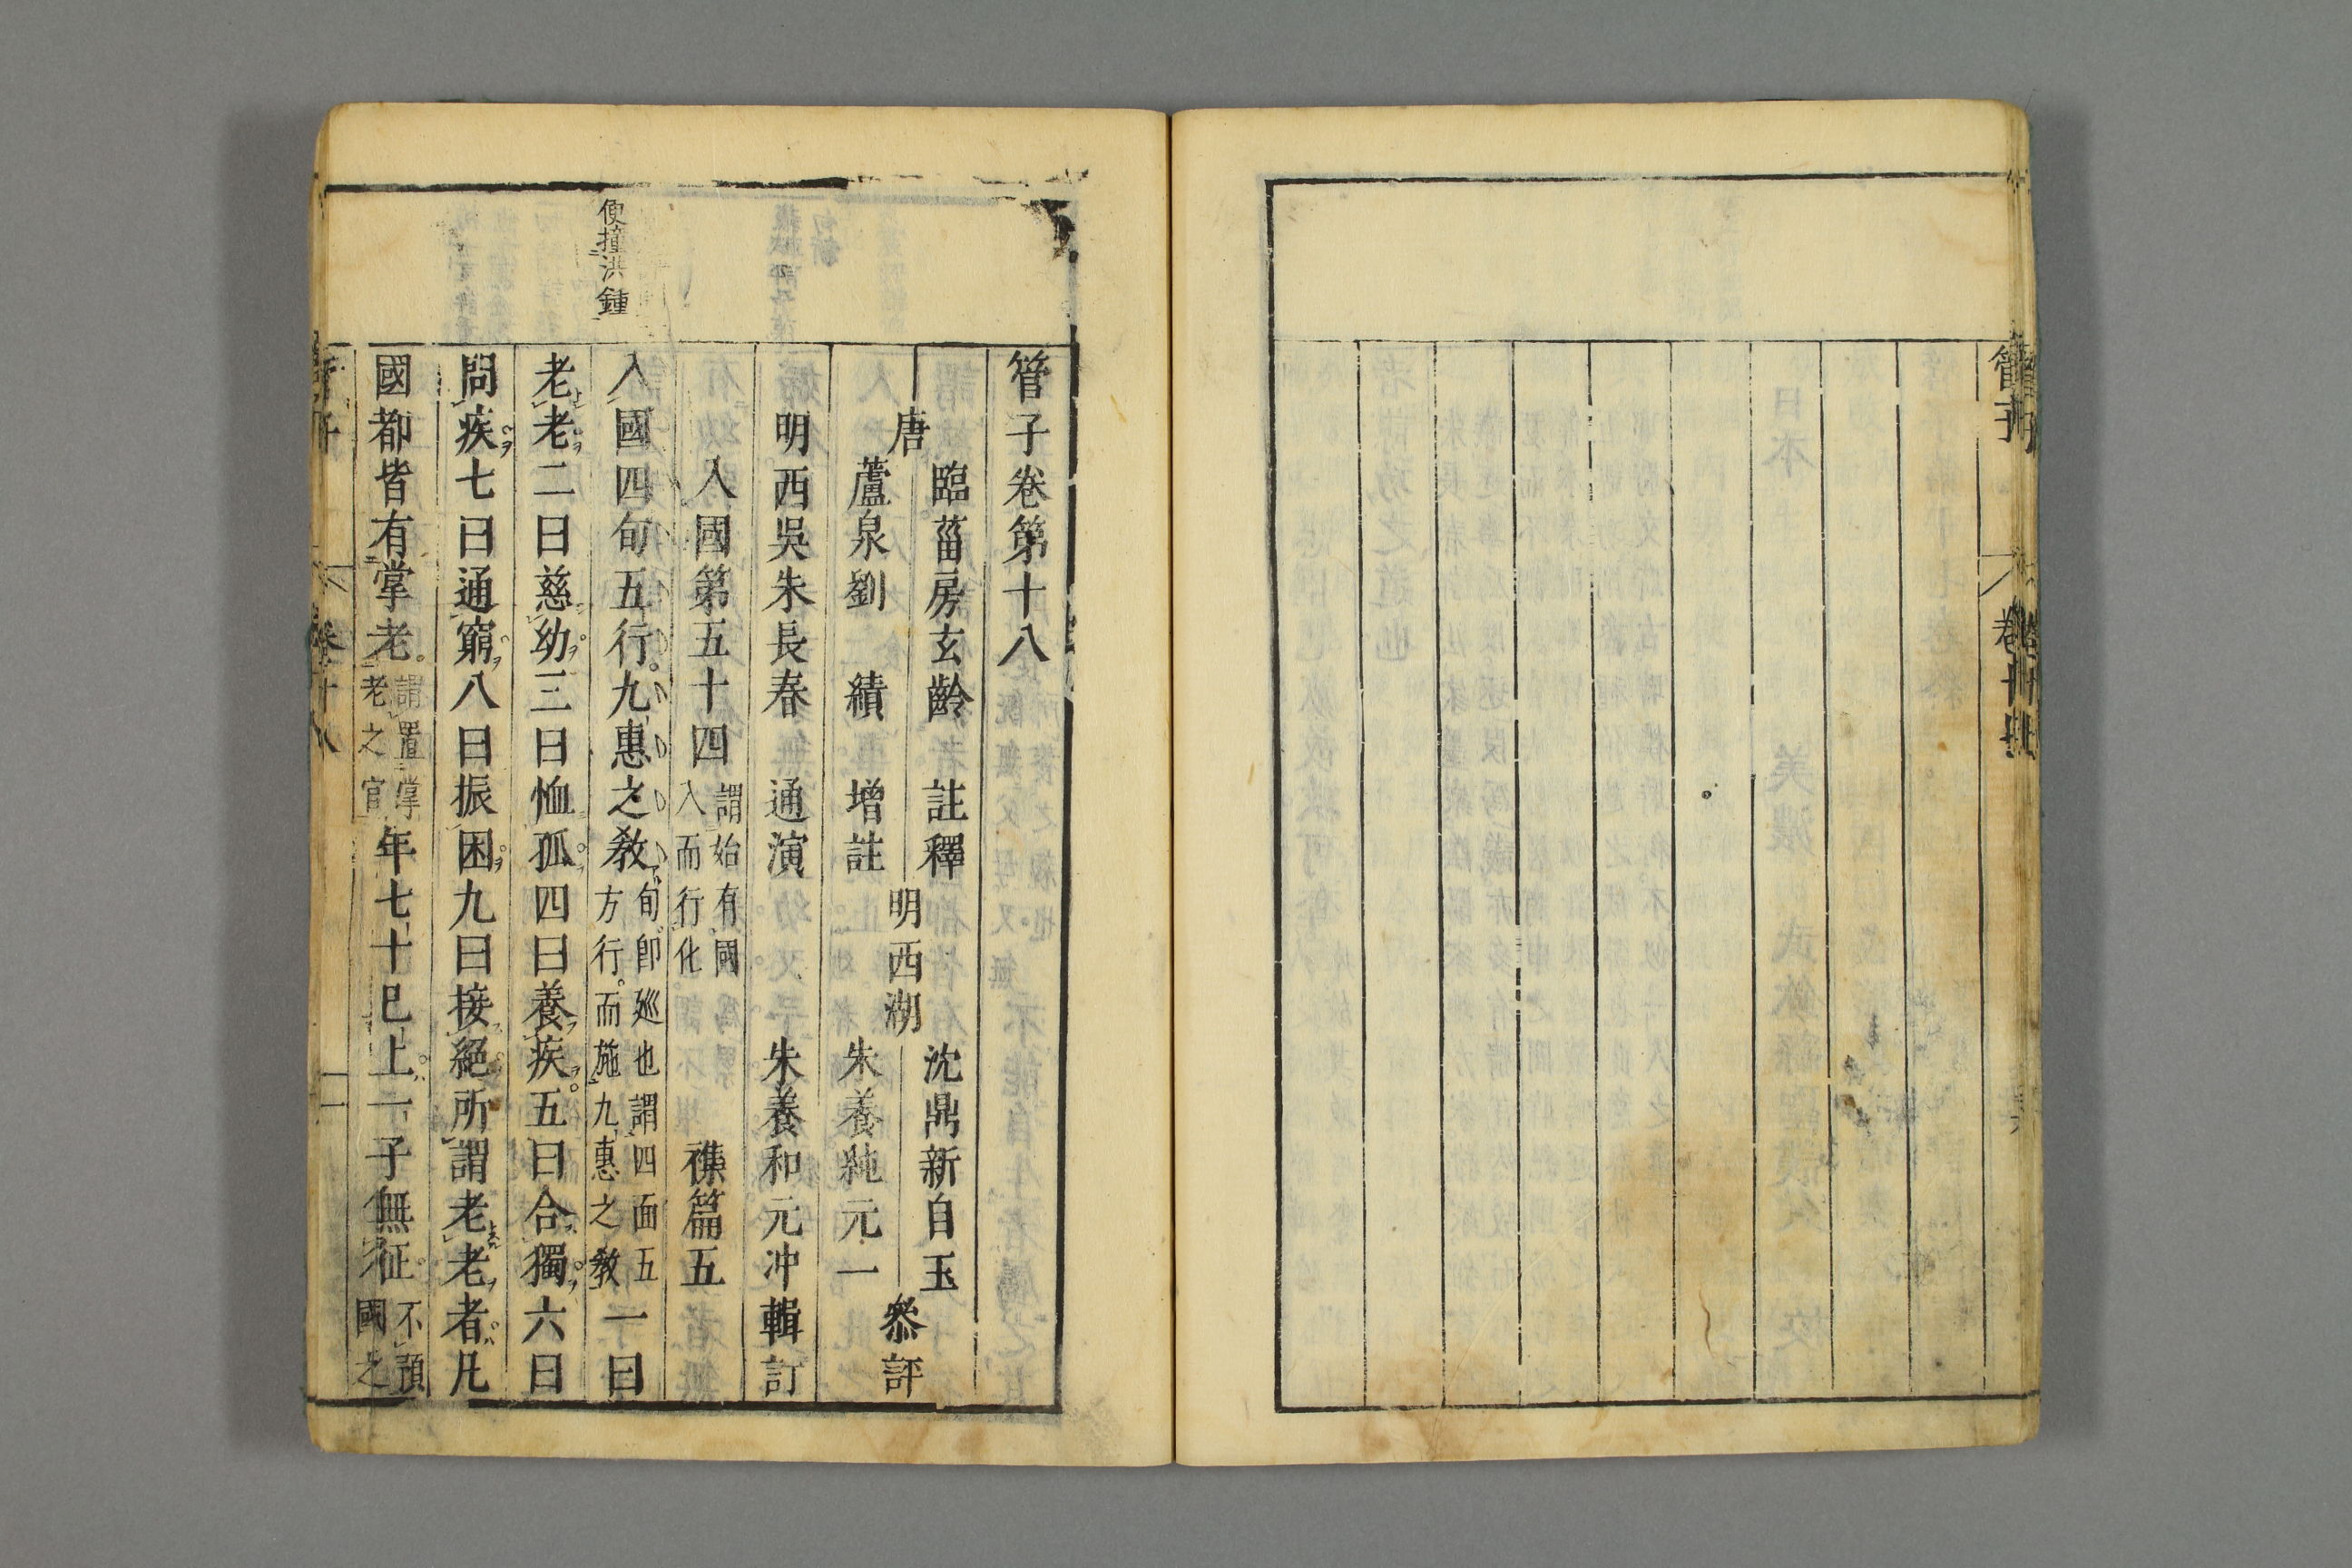 管子卷第十八
唐
臨菑房玄齡 註釋
蘆泉劉 績 增註
明西湖
沈鼎新自玉
朱養純元一
叅評
明西吳朱長春 通演 朱養和元冲輯訂
入國第五十四
謂始有國
入而行化
襍篇五
便撞洪鐘
入國四旬五行九惠之教
旬即廵也謂四面五
方行而施九惠之教
一曰
老老二曰慈幼三曰恤孤四曰養疾五曰合獨六曰
問疾七曰通窮八曰振困九曰接絕所謂老老者凡
國都皆有掌老
謂置掌
老之官
年七十已上一子無征
不預
國之
管子 卷十八 一